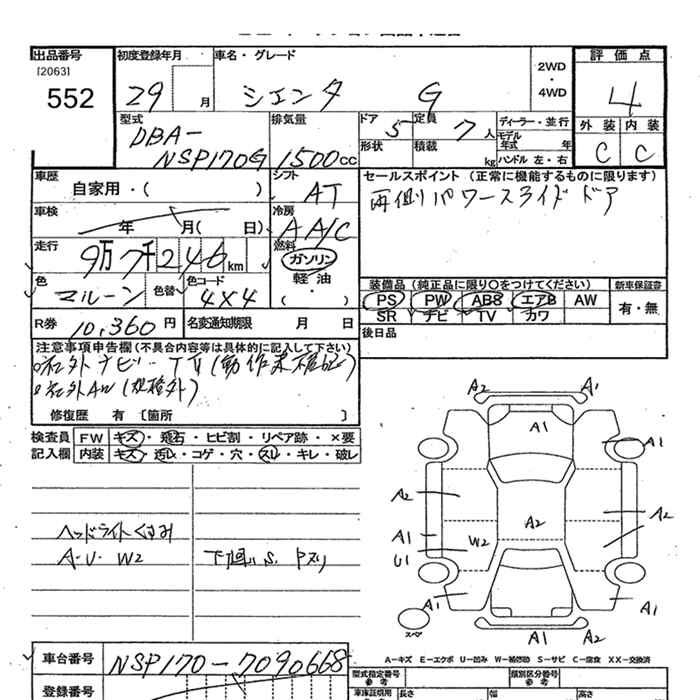 出品番号
[2063]
552
初度登録年月
29 月
車名・グレード
シエンタ G
2WD
・
4WD
評価点
4
外装 内装
C C
型式
DBA-
NSP170G
排気量
1500cc
ドア 5
定員 7人
形状
積載 kg
ディーラー・並行
モデル
年式 年
ハンドル 左・右
車歴
自家用・( )
シフト
AT
車検
年 月( 日)
冷房
AA/C
走行
9万7千246km
燃料
ガソリン
軽油
・( )
色
マルーン
色替
色コード
4X4
R券 10,360円
名変通知期限 月 日
セールスポイント(正常に機能するものに限ります)
両側パワースライドドア
装備品(純正品に限り○をつけてください)
PS PW ABS エアB AW
SR ナビ TV カワ
新車保証書
有・無
後日品
注意事項申告欄(不具合内容等は具体的に記入して下さい)
社外ナビ・TV(動作未確認)
社外AW(規格外)
修復歴 有 [箇所 ]
検査員 FW キズ・飛石・ヒビ割・リペア跡・×要
記入欄 内装 キズ・汚レ・コゲ・穴・スレ・キレ・破レ
ヘッドライトくすみ
A・U・W2
下廻りS.Pズリ
A2 A1
A1 A1
A2
A2 A2
A1 W2
U1
A1 A1
スペア
A1 A2
A-キズ E-エクボ U-凹み W-補修跡 S-サビ C-腐食 XX-交換済
車台番号 NSP170-7090668
登録番号
型式指定番号
参考
類別区分番号
参考
車庫証明用
長さ 幅 高さ